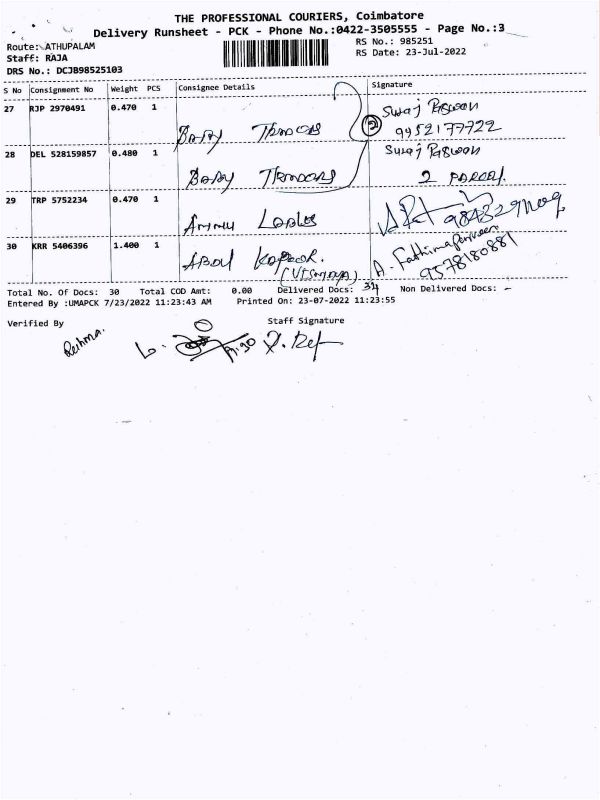 THE PROFESSIONAL COURIERS, Coimbatore
Delivery Runsheet - PCK - Phone No.:0422-3505555 - Page No.:3
Route: ATHUPALAM
RS No.: 985251
Staff: RAJA
RS Date: 23-Jul-2022
DRS No.: DCJB98525103
S No Consignment No Weight PCS Consignee Details Signature
27 RJP 2970491 0.470 1
Suraj Paswan
2 9952177722
28 DEL 528159857 0.480 1
Suraj Paswan
2 PARCEL
29 TRP 5752234 0.470 1
Ammu
30 KRR 5406396 1.400 1
Abdul
A. Fathima Parveen
9578180881
Total No. Of Docs: 30 Total COD Amt: 0.00 Delivered Docs: 34 Non Delivered Docs: -
Entered By :UMAPCK 7/23/2022 11:23:43 AM Printed On: 23-07-2022 11:23:55
Verified By Staff Signature
Reshma.